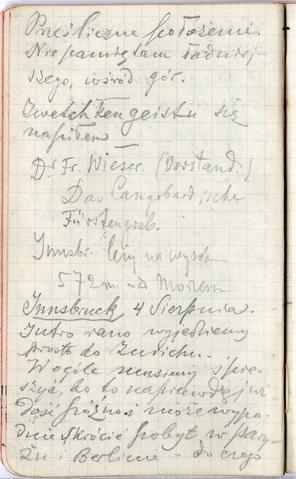 Prześliczne położenie.
Nie pamiętam ładniej
szego, wśród gór.
się
napiłem
Dr Fr. Wieser. (Vorstand.)
Das Langobardische
Fürstengrab.
Innsbr. leży na wysok
572 m. nad Morzem
Innsbruck, 4 Sierpnia.
Jutro rano wyjedziemy
prosto do Zurichu.
W ogóle musimy śpie-
szyć, bo to naprawdę już
dość późno i może wypa-
dnie skrócić pobyt w Pary-
żu i Berlinie - do czego